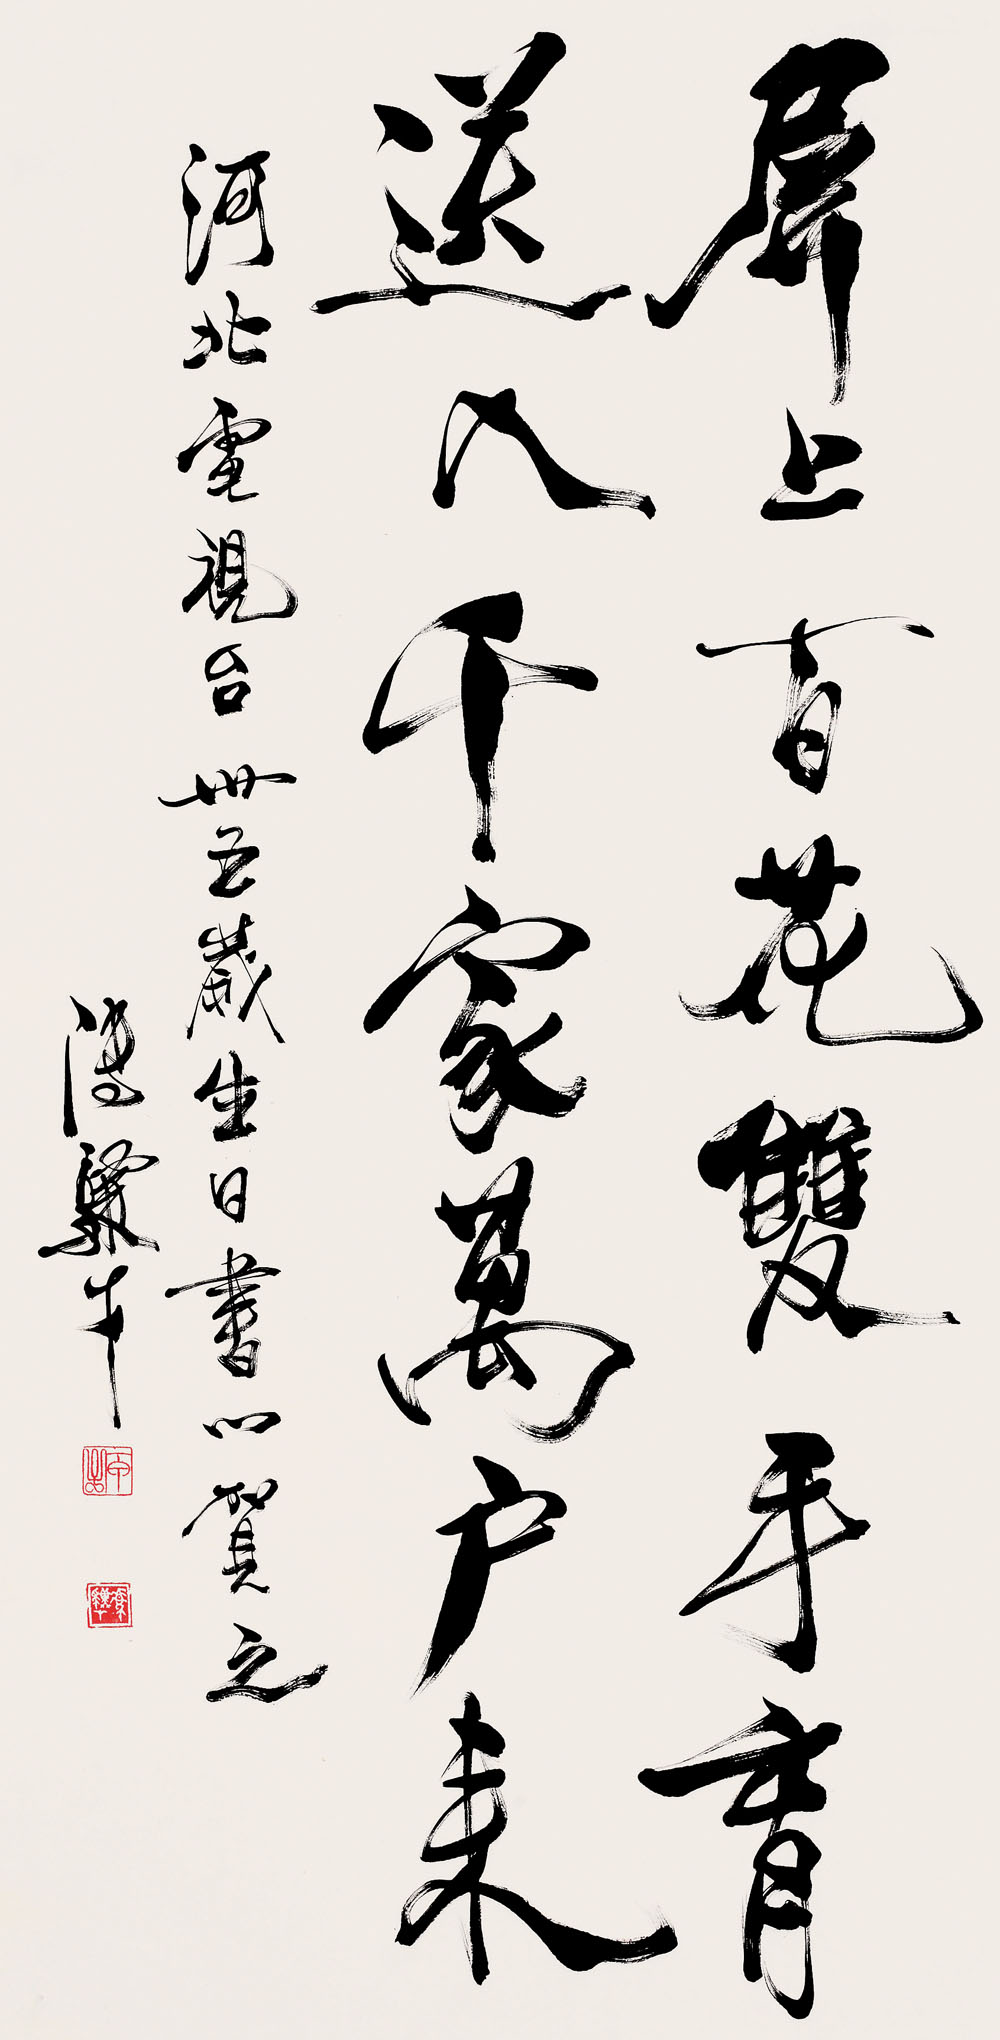 屏上百花雙手育
送入千家萬户来
河北電視台卅五歲生日書以賀之
陳驥华